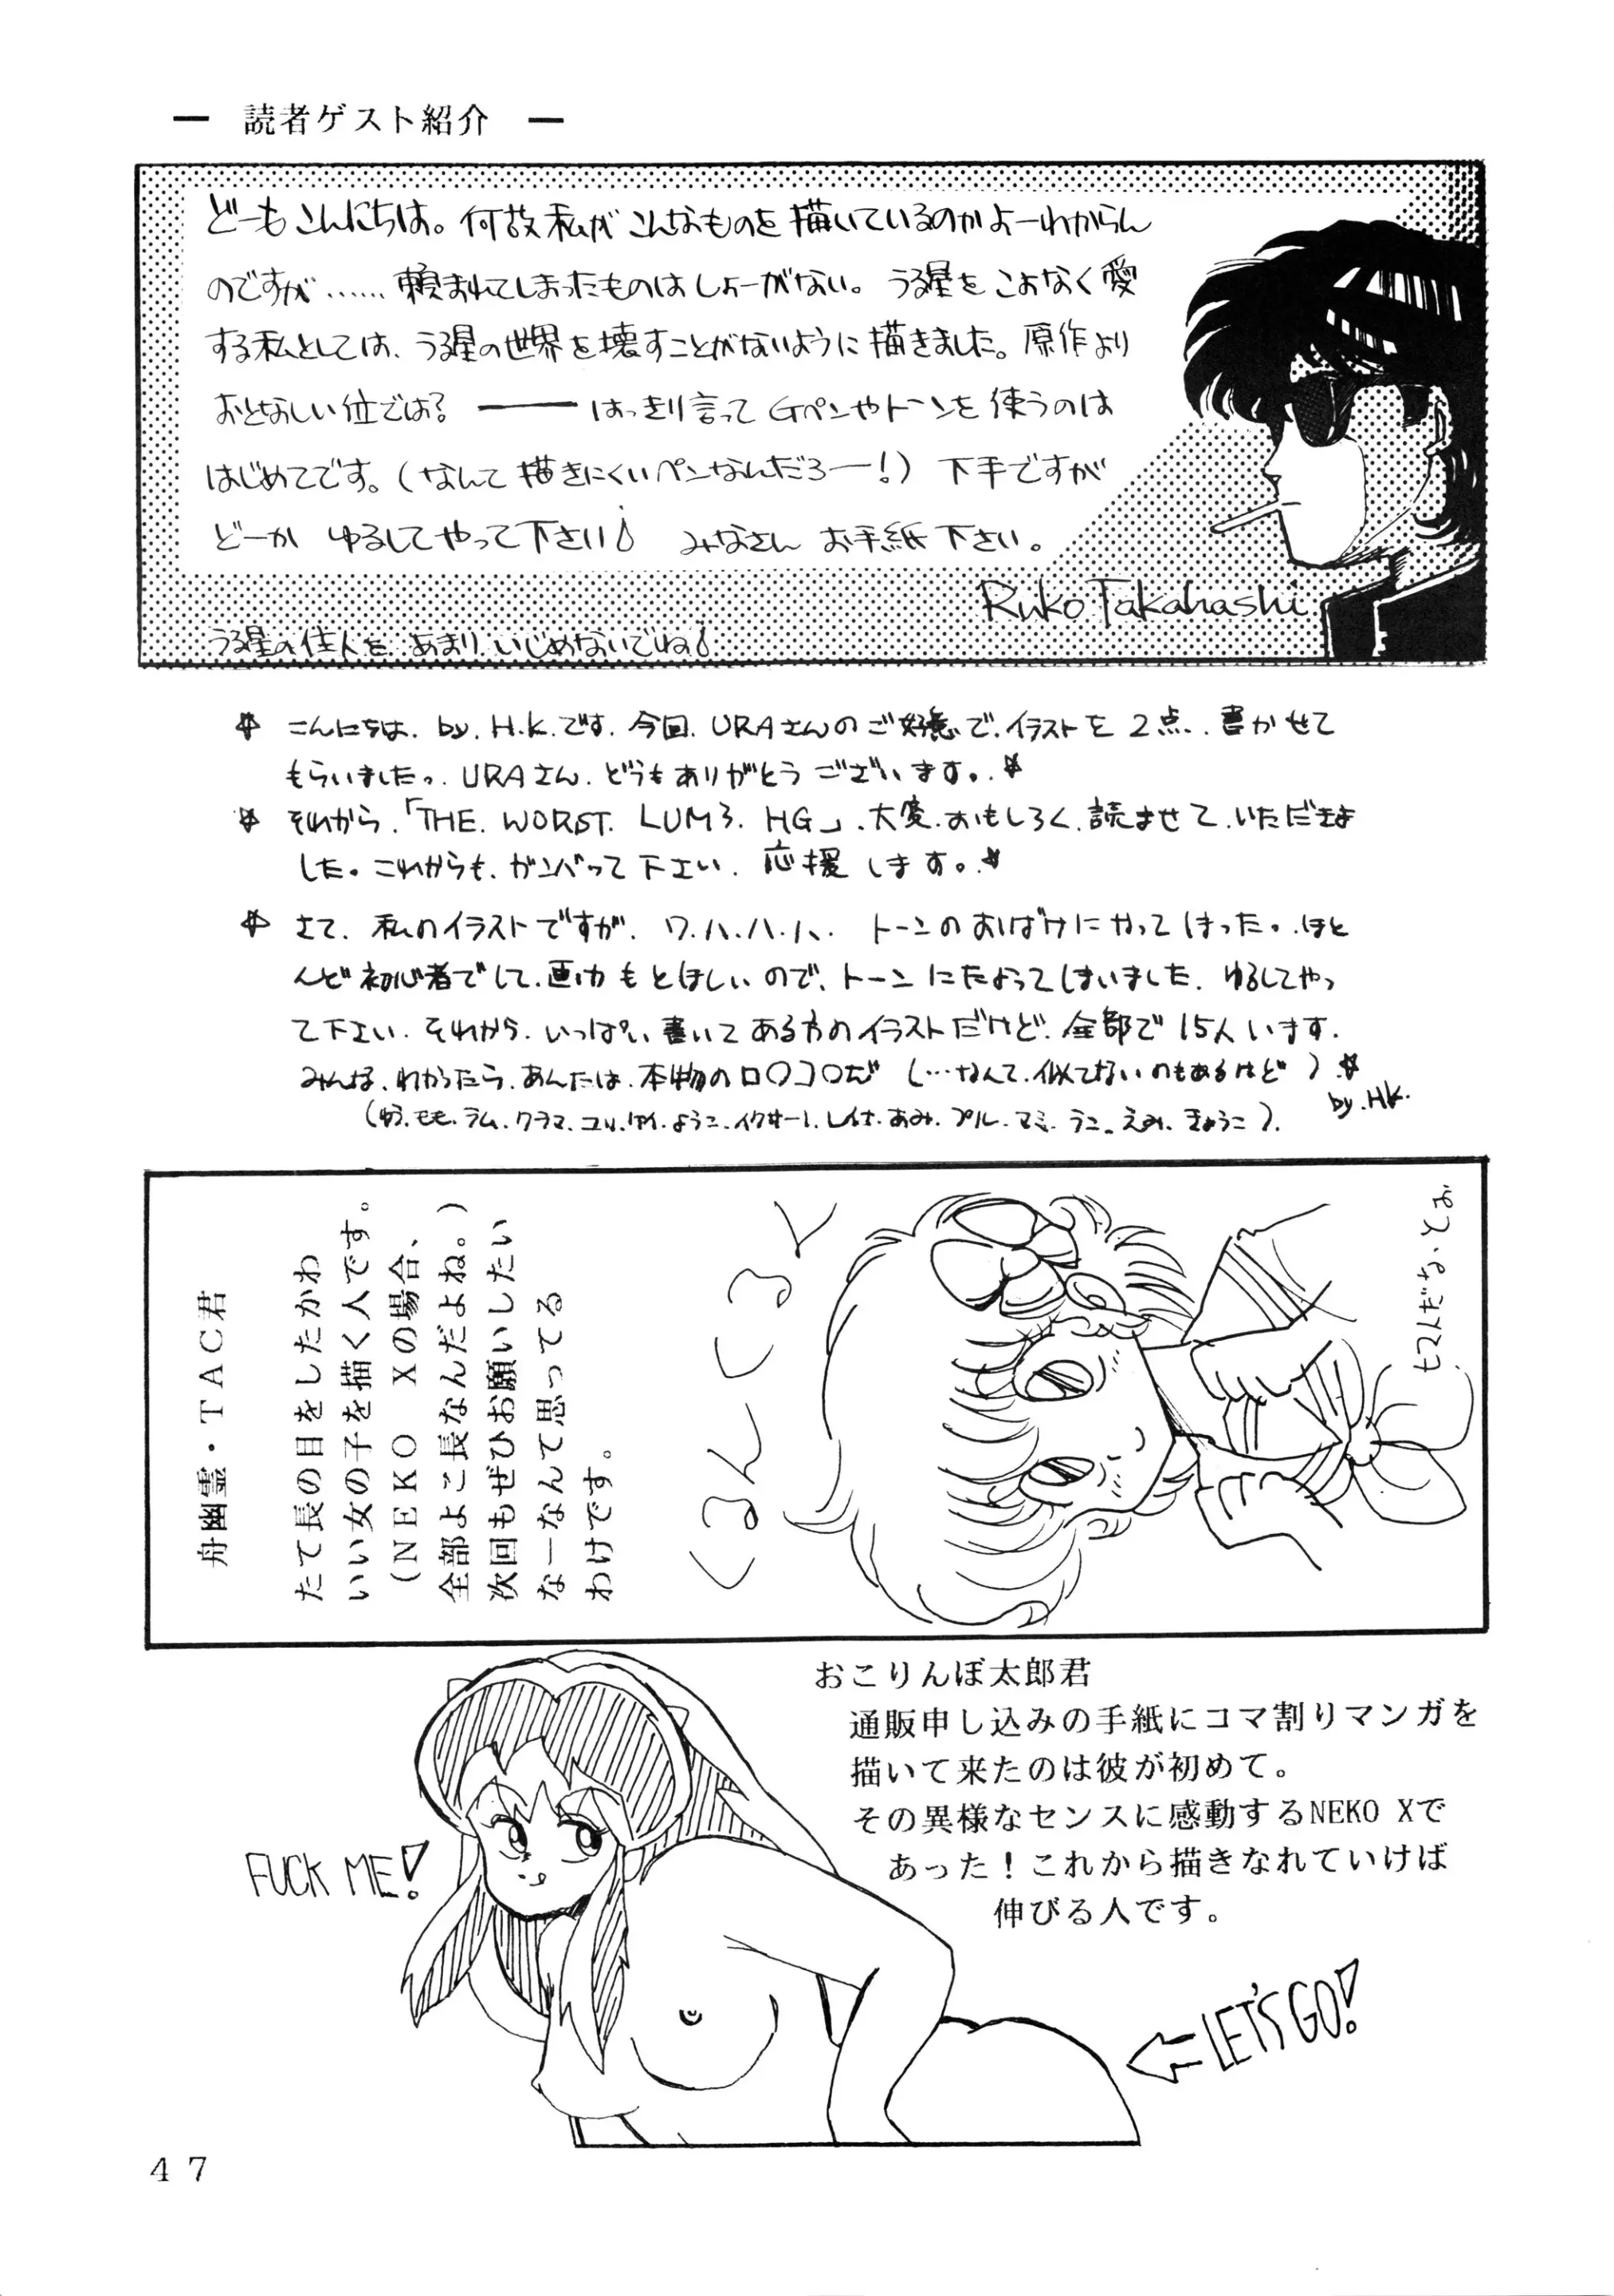 ― 読者ゲスト紹介 ―
どーもこんにちは。何故私がこんなものを描いているのかよーわからん
のですが……頼まれてしまったものはしょーがない。うる星をこよなく愛
する私としては、うる星の世界を壊すことがないように描きました。原作より
おとなしい位では? ――― はっきり言ってGペンやトーンを使うのは
はじめてです。(なんて描きにくいペンなんだろー!) 下手ですが
どーか ゆるしてやって下さい♪ みなさん お手紙下さい。
Ruko Takahashi
うる星の住人を、あまり、いじめないでね♪
☆ こんにちは、by.H.K.です。今回、URAさんのご好意で、イラストを2点、書かせて
もらいましたっ。URAさん、どうもありがとうございます。☆
☆ それから、「THE WORST LUM3. HG」、大変、おもしろく、読ませて、いただきま
した。これからも、ガンバって下さい、応援します。☆
☆ さて、私のイラストですが、ワ、ハ、ハ、ハ、トーンのおばけになってしまった。ほと
んど初心者でして、画力もとぼしいので、トーンにたよってしまいました、ゆるしてやっ
て下さい。それから、いっぱい書いてある方のイラストだけど、全部で15人います。
みんな、わかったら、あんたは、本物のロ〇コ〇だ (…なんて、似てないのもあるけど)☆
by.HK.
(ゆう、モモ、ラム、クラマ、ユリ、ゆい、ようこ、イクサー1、レイナ、あみ、プル、マミ、ラン、えみ、きょうこ)
舟幽霊・TAC君
たて長の目をしたかわ
いい女の子を描く人です。
(NEKO Xの場合、
全部よこ長なんだよね。)
次回もぜひお願いしたい
なーなんて思ってる
わけです。
くるんくるくる
おこりんぼ太郎君
通販申し込みの手紙にコマ割りマンガを
描いて来たのは彼が初めて。
その異様なセンスに感動するNEKO Xで
あった!これから描きなれていけば
伸びる人です。
FUCK ME!
⇐LET'S GO!
47